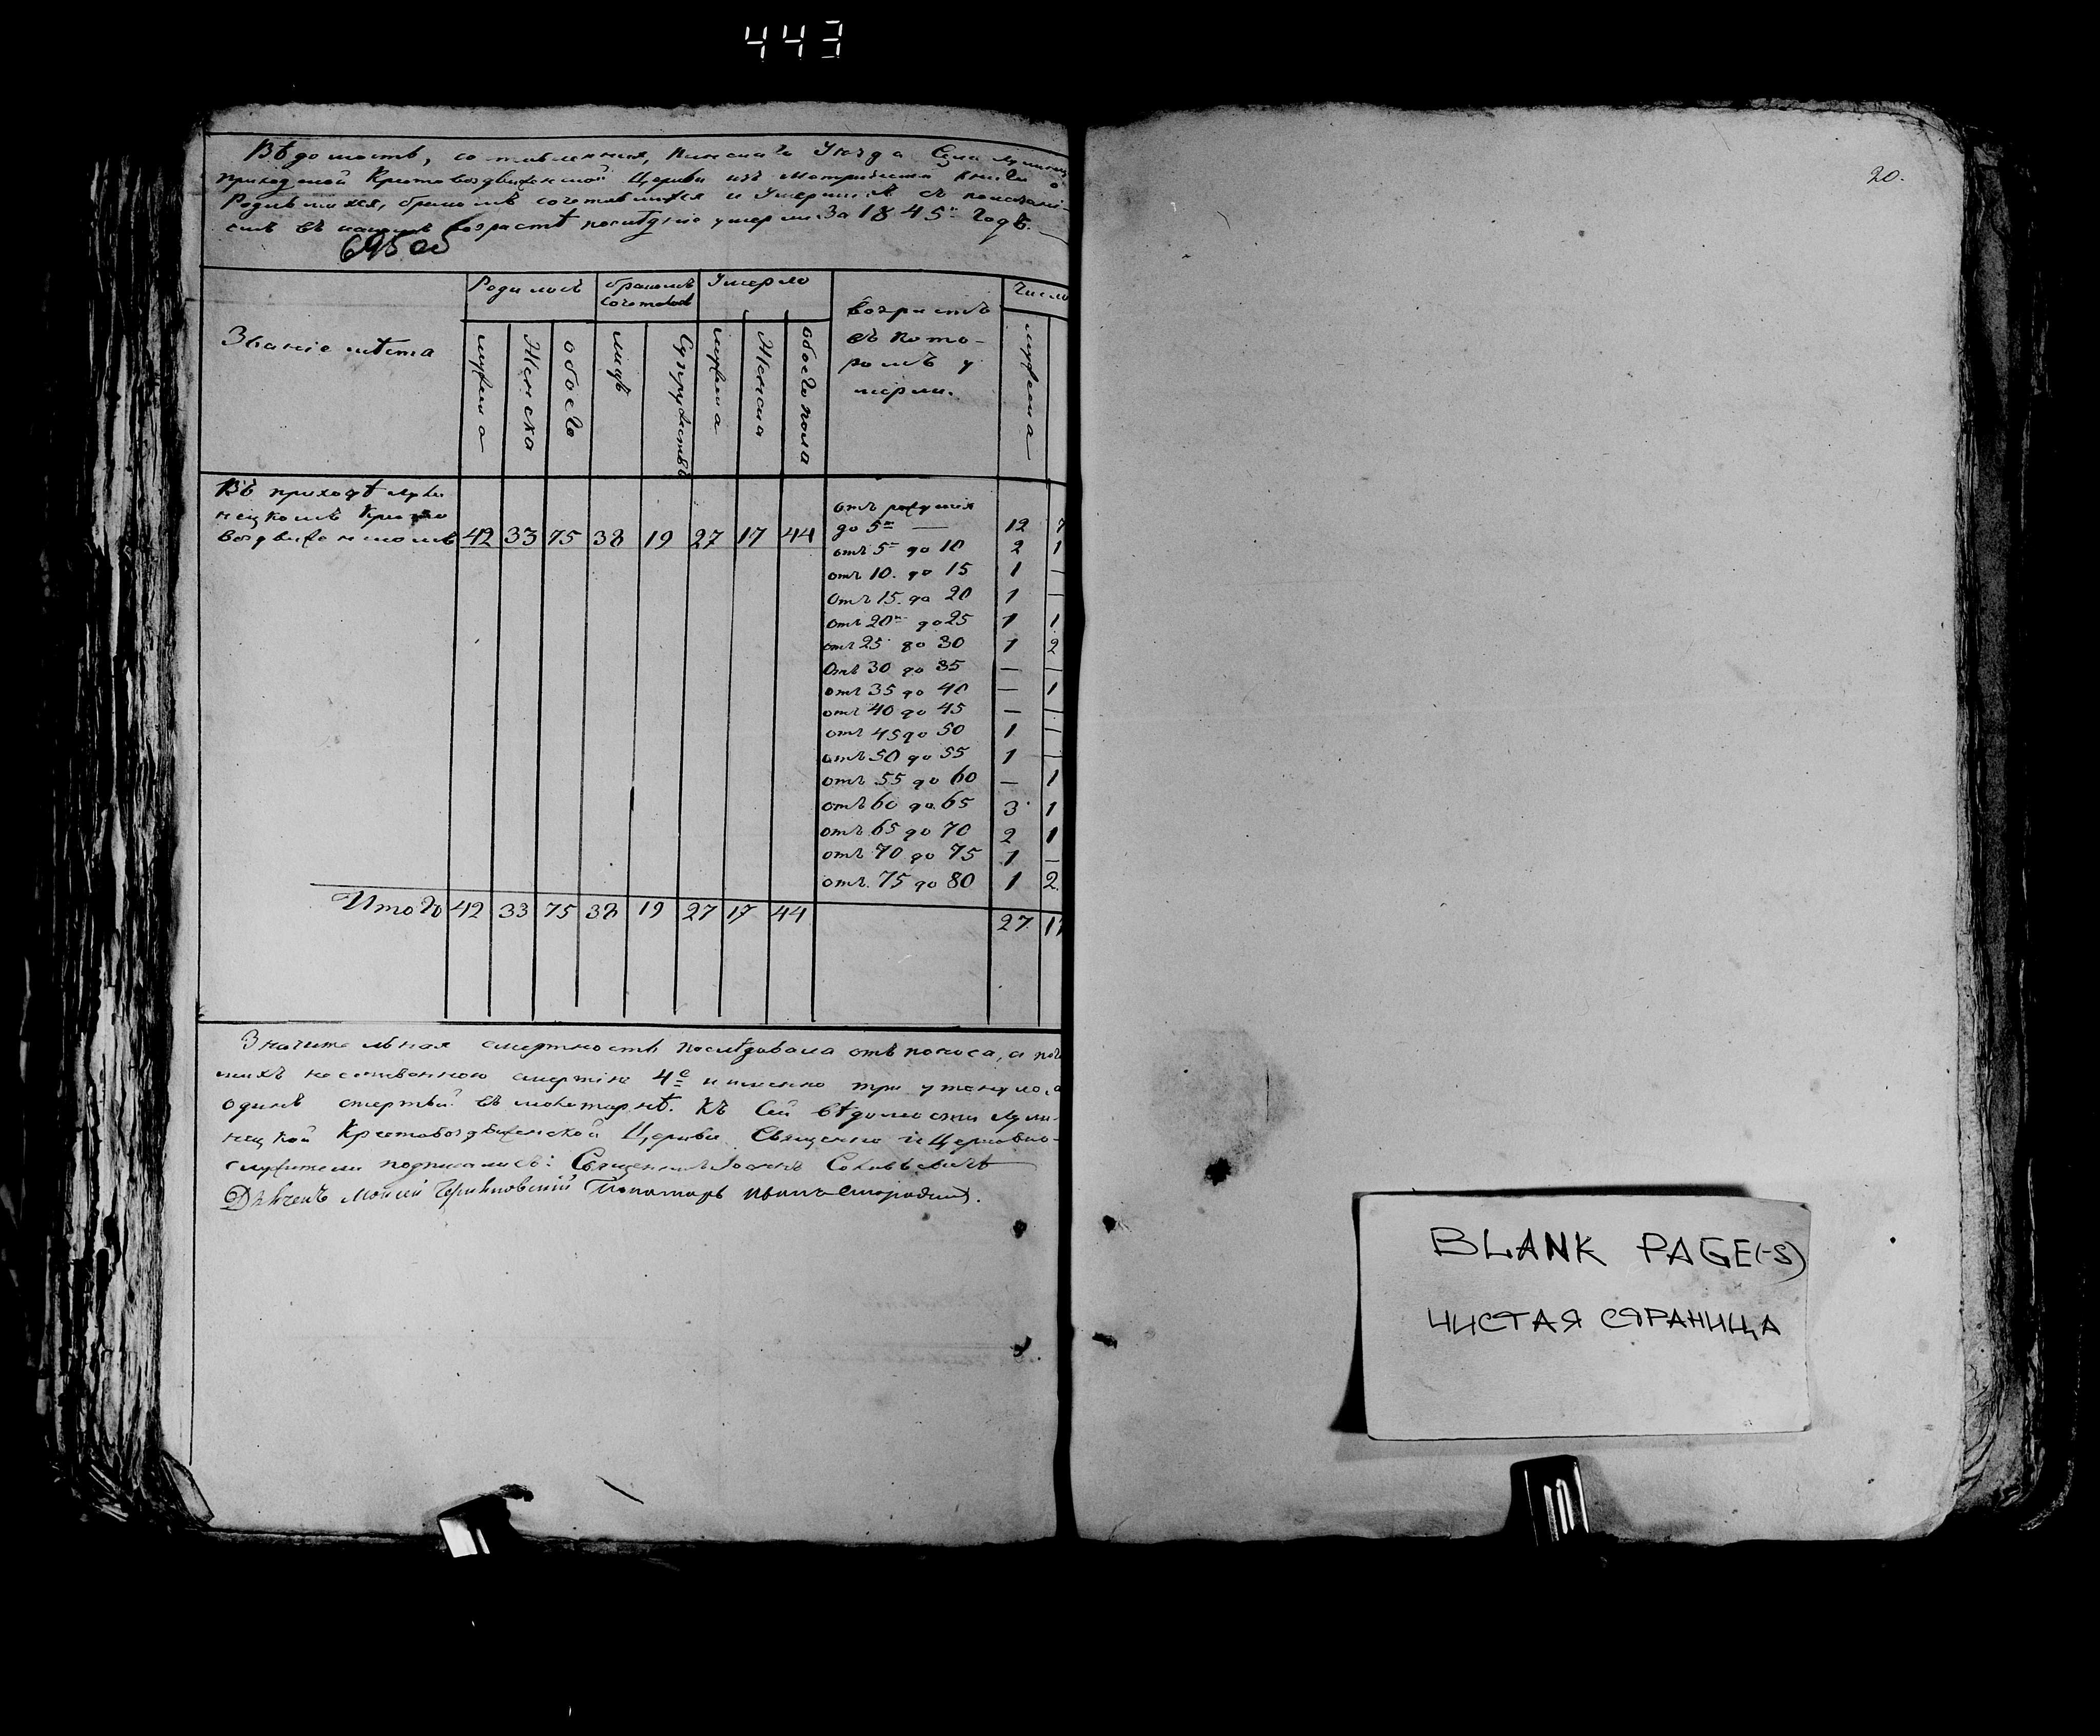 443
Вѣдомость, составленная, Пинскаго Уѣзда Села Лунинц
приходской Крестовоздвиженской Церкви изъ Метрической книги о
Родившихся, бракомъ сочетавшихся и Умершихъ съ показані-
емъ въ какомъ возрастѣ послѣдніе умерли. За 1845й Годъ.
Званіе мѣста
Родилось
бракомъ сочетавш
Умерло
возрастъ
въ кото-
ромъ у
мерли.
Число
мужеска
Женска
обоего
лицъ
Супружествъ
мужеска
Женска
обоего пола
мужеска
Въ приходѣ Луни
нецкомъ Кресто
воздвиженскомъ 42 33 75 38 19 27 17 44
отъ рожденія
до 5и — 12 7
отъ 5и до 10 2 1
отъ 10. до 15 1 —
отъ 15. до 20 1 —
отъ 20и до 25 1 1
отъ 25 до 30 1 2
отъ 30 до 35 — —
отъ 35 до 40 — 1
отъ 40 до 45 — —
отъ 45 до 50 1 —
отъ 50 до 55 1 —
отъ 55 до 60 — 1
отъ 60 до 65 3 1
отъ 65 до 70 2 1
отъ 70 до 75 1 —
отъ 75 до 80 1 2
Итого 42 33 75 38 19 27 17 44 27 17
Значительная смертность послѣдовала отъ поноса, а
смертію 4е именно три утонуло, а
одинъ Къ сей вѣдомости Луни-
нецкой Крестовоздвиженской Церкви Священно и Церковно-
служители подписались: Священникъ Іоаннъ
Дьячекъ Моисей Пономарь Иванъ
20.
BLANK PAGE(-S)
ЧИСТАЯ СТРАНИЦА